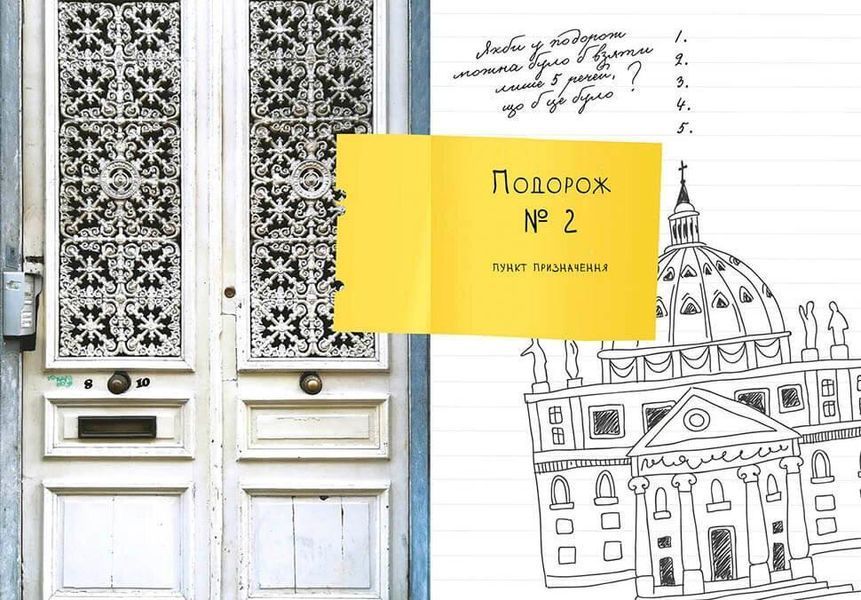 Якби у подорож
можна було б взяти
лише 5 речей,
що б це було?
1.
2.
3.
4.
5.
Подорож
№ 2
пункт призначення
8 10